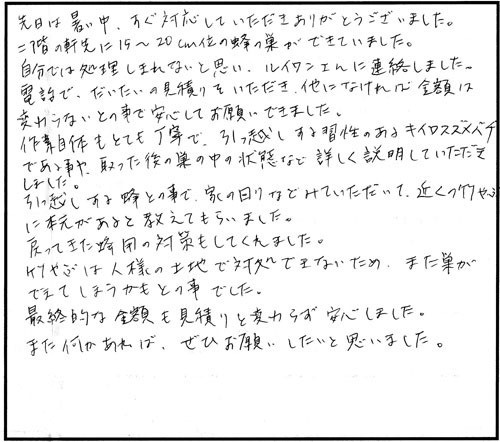 先日は暑い中、すぐ対応していただきありがとうございました。
二階の軒先に15〜20cm位の蜂の巣ができていました。
自分では処理しきれないと思い、ルイワンさんに連絡しました。
電話で、だいたいの見積りをいただき、他になければ金額は
変わらないとの事で安心してお願いできました。
作業自体もとても丁寧で、引っ越しする習性のあるキイロスズメバチ
である事や、取った後の巣の中の状態など詳しく説明していただき
ました。
引っ越しする蜂との事で、家の回りなどみていただいて、近くの竹やぶ
に本元があると教えてもらいました。
戻ってきた蜂用の対策もしてくれました。
竹やぶは人様の土地で対処できないため、また巣が
できてしまうかもとの事でした。
最終的な金額も見積りと変わらず安心しました。
また何かあれば、ぜひお願いしたいと思いました。